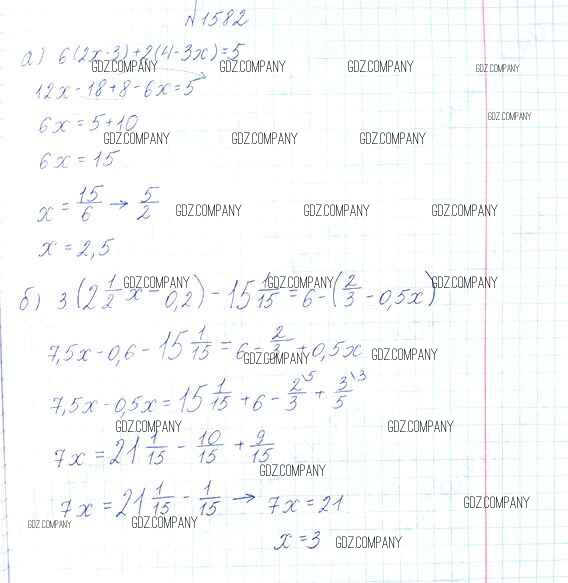 №1582
а) 6(2x-3)+2(4-3x)=5
GDZ.COMPANY GDZ.COMPANY GDZ.COMPANY GDZ.COMPANY
12x-18+8-6x=5
6x=5+10
GDZ.COMPANY
GDZ.COMPANY GDZ.COMPANY GDZ.COMPANY
6x=15
x=15/6→5/2
GDZ.COMPANY GDZ.COMPANY GDZ.COMPANY
x=2,5
GDZ.COMPANY GDZ.COMPANY GDZ.COMPANY
б) 3(2 1/2 x-0,2)-15 1/15=6-(2/3-0,5x)
7,5x-0,6-15 1/15=6-2/3+0,5x
GDZ.COMPANY GDZ.COMPANY
7,5x-0,5x=15 1/15+6-2\5/3+3\3/5
GDZ.COMPANY GDZ.COMPANY
7x=21 1/15-10/15+9/15
GDZ.COMPANY
7x=21 1/15-1/15→7x=21
GDZ.COMPANY
GDZ.COMPANY GDZ.COMPANY
x=3
GDZ.COMPANY